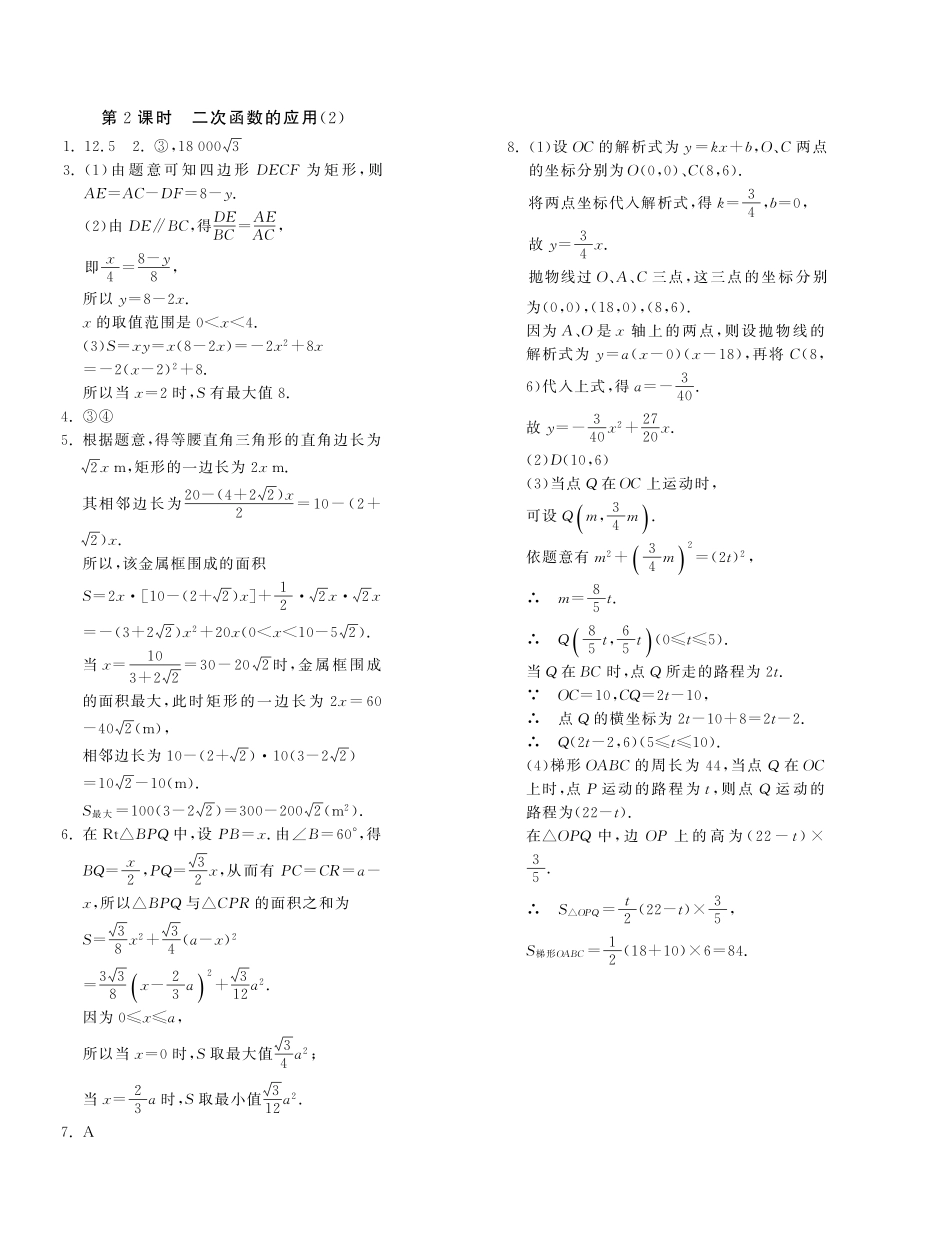 第 2 课时　二次函数的应用(2)
1. 12.5　2. ③,18 000√3
3. (1)由题意可知四边形 DECF 为矩形,则
AE=AC−DF=8−y.
(2)由 DE∥BC,得DE/BC=AE/AC,
即x/4=(8−y)/8,
所以 y=8−2x.
x 的取值范围是 0<x<4.
(3)S=xy=x(8−2x)=−2x²+8x
=−2(x−2)²+8.
所以当 x=2 时,S 有最大值 8.
4. ③④
5. 根据题意,得等腰直角三角形的直角边长为
√2x m,矩形的一边长为 2x m.
其相邻边长为(20−(4+2√2)x)/2=10−(2+
√2)x.
所以,该金属框围成的面积
S=2x·[10−(2+√2)x]+1/2·√2x·√2x
=−(3+2√2)x²+20x(0<x<10−5√2).
当 x=10/(3+2√2)=30−20√2时,金属框围成
的面积最大,此时矩形的一边长为 2x=60
−40√2(m),
相邻边长为 10−(2+√2)·10(3−2√2)
=10√2−10(m).
S最大=100(3−2√2)=300−200√2(m²).
6. 在 Rt△BPQ 中,设 PB=x. 由∠B=60°,得
BQ=x/2,PQ=√3/2x,从而有 PC=CR=a−
x,所以△BPQ 与△CPR 的面积之和为
S=√3/8x²+√3/4(a−x)²
=3√3/8(x−2/3a)²+√3/12a².
因为 0≤x≤a,
所以当 x=0 时,S 取最大值√3/4a²;
当 x=2/3a 时,S 取最小值√3/12a².
7. A
8. (1)设 OC 的解析式为 y=kx+b,O、C 两点
的坐标分别为O(0,0)、C(8,6).
将两点坐标代入解析式,得 k=3/4,b=0,
故 y=3/4x.
抛物线过 O、A、C 三点,这三点的坐标分别
为(0,0),(18,0),(8,6).
因为 A、O 是 x 轴上的两点,则设抛物线的
解析式为 y=a(x−0)(x−18),再将 C(8,
6)代入上式,得 a=−3/40.
故 y=−3/40x²+27/20x.
(2)D(10,6)
(3)当点 Q 在 OC 上运动时,
可设 Q(m,3/4m).
依题意有 m²+(3/4m)²=(2t)²,
∴　m=8/5t.
∴　Q(8/5t,6/5t)(0≤t≤5).
当 Q 在 BC 时,点 Q 所走的路程为 2t.
∵　OC=10,CQ=2t−10,
∴　点 Q 的横坐标为 2t−10+8=2t−2.
∴　Q(2t−2,6)(5≤t≤10).
(4)梯形 OABC 的周长为 44,当点 Q 在 OC
上时,点 P 运动的路程为 t,则点 Q 运动的
路程为(22−t).
在△OPQ 中,边 OP 上的高为(22−t)×
3/5.
∴　S△OPQ=t/2(22−t)×3/5,
S梯形OABC=1/2(18+10)×6=84.